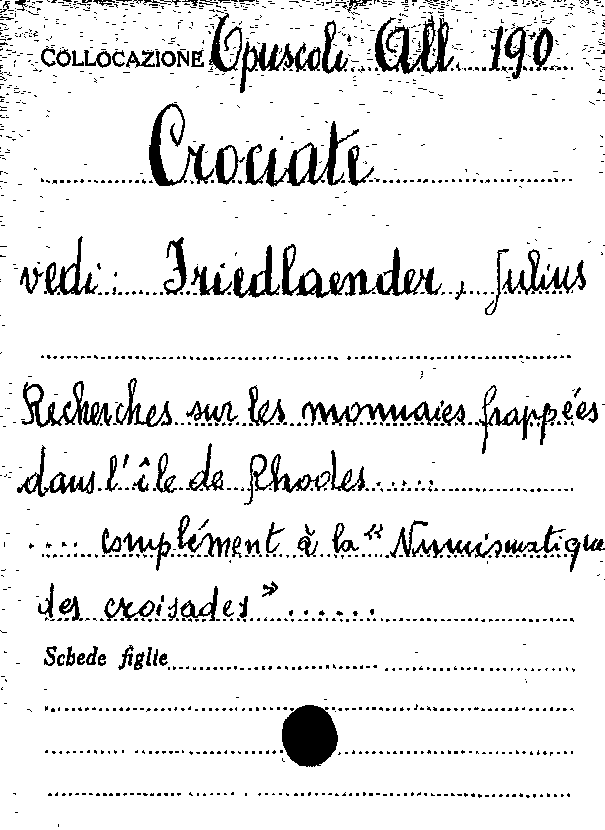 COLLOCAZIONE Opuscoli All. 190
Crociate
vedi: Friedlaender, Julius
Recherches sur les monnaies frappées
dans l'île de Rhodes.....
.... complément à la « Numismatique
des croisades » ......
Schede figlie